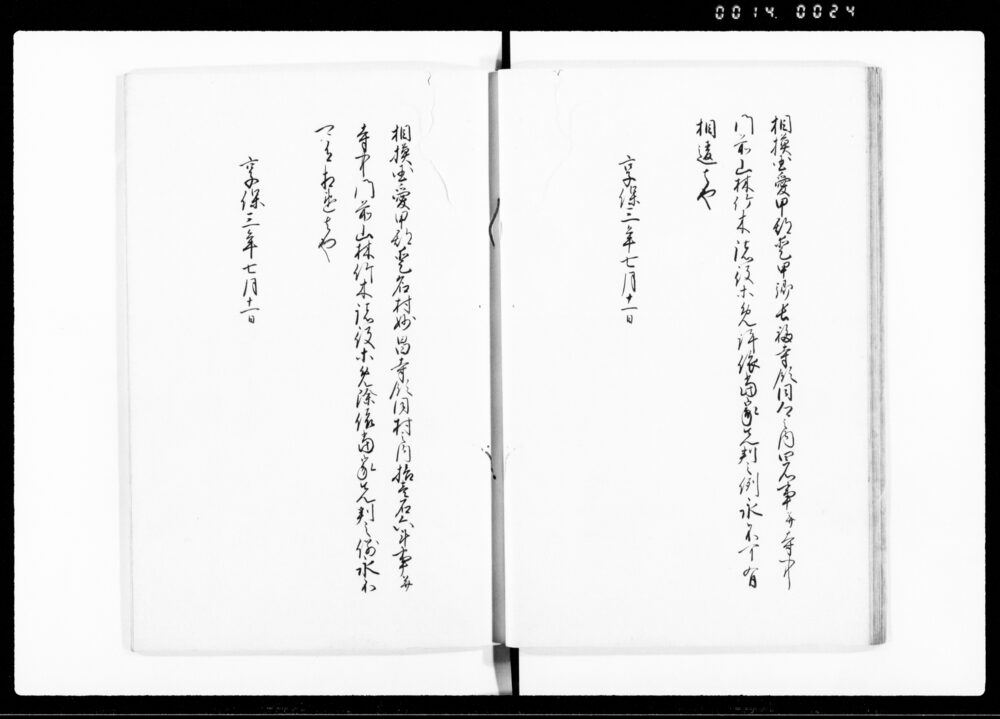 0014.0024
相模国愛甲郡愛甲郷長福寺領同郷之内四石事并寺中
門前山林竹木諸役等免許依当家先判之例永不可有
相違者也
享保三年七月十一日
相模国愛甲郡愛名村妙昌寺領同村之内拾壱石六斗事并
寺中門前山林竹木諸役等免除依当家先判之例永不
可有相違者也
享保三年七月十一日